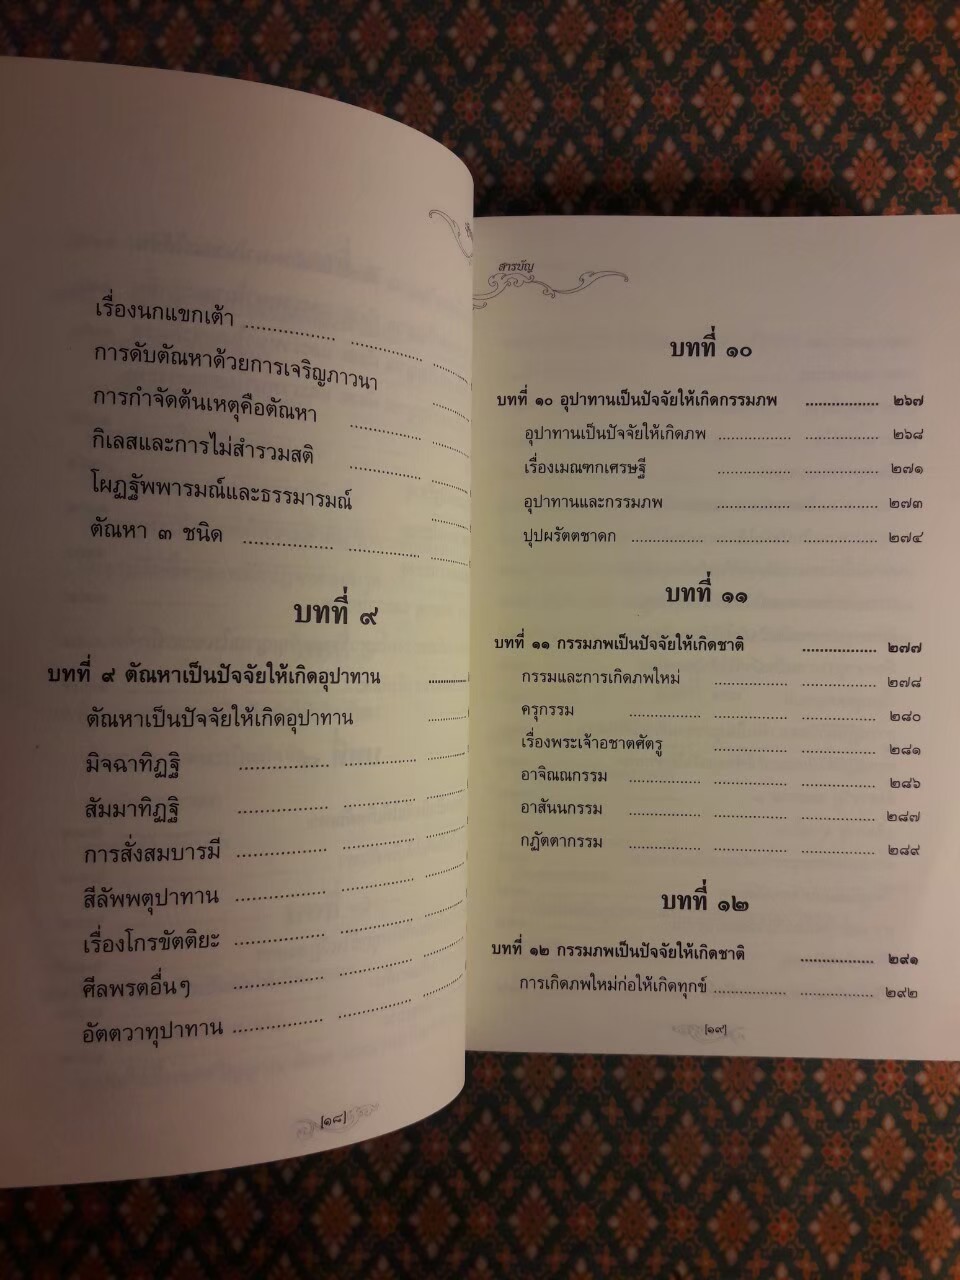 เรื่องนกแขกเต้า
การดับตัณหาด้วยการเจริญภาวนา
การกำจัดต้นเหตุคือตัณหา
กิเลสและการไม่สำรวมสติ
โผฏฐัพพารมณ์และธรรมารมณ์
ตัณหา ๓ ชนิด
บทที่ ๙
บทที่ ๙ ตัณหาเป็นปัจจัยให้เกิดอุปาทาน
ตัณหาเป็นปัจจัยให้เกิดอุปาทาน
มิจฉาทิฏฐิ
สัมมาทิฏฐิ
การสั่งสมบารมี
สีลัพพตุปาทาน
เรื่องโกรขัตติยะ
ศีลพรตอื่นๆ
อัตตวาทุปาทาน
[๑๘]
สารบัญ
บทที่ ๑๐
บทที่ ๑๐ อุปาทานเป็นปัจจัยให้เกิดกรรมภพ ๒๖๗
อุปาทานเป็นปัจจัยให้เกิดภพ ๒๖๘
เรื่องเมณฑกเศรษฐี ๒๗๑
อุปาทานและกรรมภพ ๒๗๓
ปุปผรัตตชาดก ๒๗๔
บทที่ ๑๑
บทที่ ๑๑ กรรมภพเป็นปัจจัยให้เกิดชาติ ๒๗๗
กรรมและการเกิดภพใหม่ ๒๗๘
ครุกรรม ๒๘๐
เรื่องพระเจ้าอชาตศัตรู ๒๘๑
อาจิณณกรรม ๒๘๖
อาสันนกรรม ๒๘๗
กฏัตตากรรม ๒๘๙
บทที่ ๑๒
บทที่ ๑๒ กรรมภพเป็นปัจจัยให้เกิดชาติ ๒๙๑
การเกิดภพใหม่ก่อให้เกิดทุกข์ ๒๙๒
[๑๙]